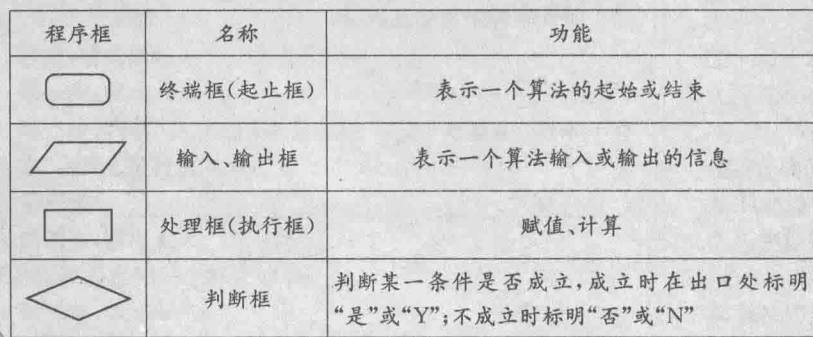 程序框 名称 功能
终端框(起止框) 表示一个算法的起始或结束
输入、输出框 表示一个算法输入或输出的信息
处理框(执行框) 赋值、计算
判断框 判断某一条件是否成立,成立时在出口处标明
“是”或“Y”;不成立时标明“否”或“N”